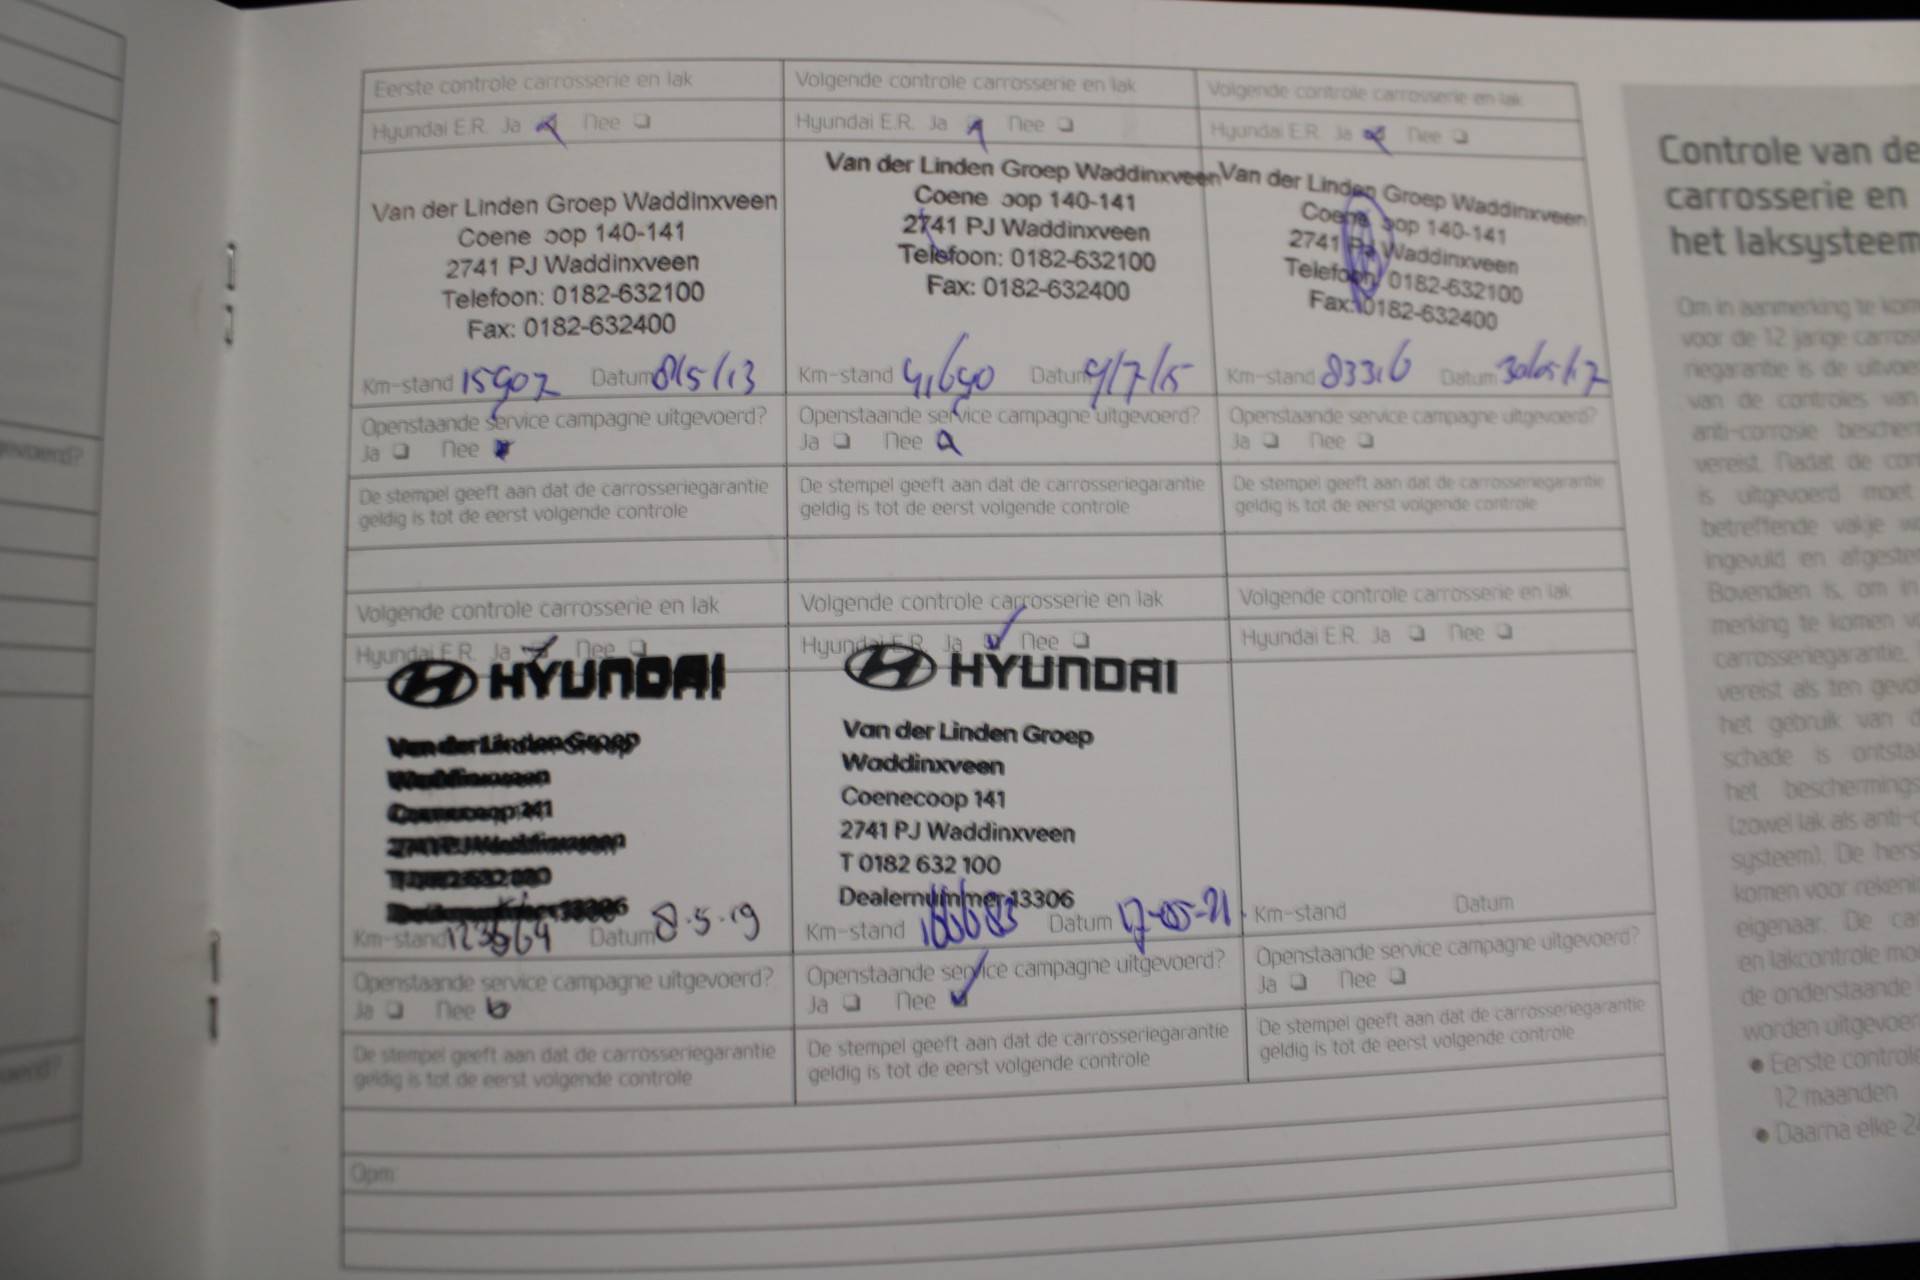 Eerste controle carrosserie en lak
Hyundai E.R. Ja Nee
Van der Linden Groep Waddinxveen
Coene oop 140-141
2741 PJ Waddinxveen
Telefoon: 0182-632100
Fax: 0182-632400
Km-stand 15907 Datum 8/5/13
Openstaande service campagne uitgevoerd?
Ja Nee
De stempel geeft aan dat de carrosseriegarantie
geldig is tot de eerst volgende controle
Volgende controle carrosserie en lak
Hyundai E.R. Ja Nee
Van der Linden Groep Waddinxveen
Coene oop 140-141
2741 PJ Waddinxveen
Telefoon: 0182-632100
Fax: 0182-632400
Km-stand Datum
Openstaande service campagne uitgevoerd?
Ja Nee
De stempel geeft aan dat de carrosseriegarantie
geldig is tot de eerst volgende controle
Volgende controle carrosserie en lak
Hyundai E.R. Ja Nee
Van der Linden Groep Waddinxveen
Coene oop 140-141
2741 PJ Waddinxveen
Telefoon: 0182-632100
Fax: 0182-632400
Km-stand Datum 30/05/17
Openstaande service campagne uitgevoerd?
Ja Nee
De stempel geeft aan dat de carrosseriegarantie
geldig is tot de eerst volgende controle
Volgende controle carrosserie en lak
Hyundai E.R. Ja Nee
HYUNDAI
Van der Linden Groep
Waddinxveen
Coenecoop 141
2741 PJ Waddinxveen
Km-stand Datum 8.5.19
Openstaande service campagne uitgevoerd?
Ja Nee
De stempel geeft aan dat de carrosseriegarantie
geldig is tot de eerst volgende controle
Volgende controle carrosserie en lak
Hyundai E.R. Ja Nee
HYUNDAI
Van der Linden Groep
Waddinxveen
Coenecoop 141
2741 PJ Waddinxveen
T 0182 632 100
Dealernummer 13306
Km-stand Datum 17-05-21
Openstaande service campagne uitgevoerd?
Ja Nee
De stempel geeft aan dat de carrosseriegarantie
geldig is tot de eerst volgende controle
Volgende controle carrosserie en lak
Hyundai E.R. Ja Nee
Km-stand Datum
Openstaande service campagne uitgevoerd?
Ja Nee
De stempel geeft aan dat de carrosseriegarantie
geldig is tot de eerst volgende controle
Opm:
Controle van de
carrosserie en
het laksysteem
Om in aanmerking te kom
voor de 12 jarige carros
riegarantie is de uitvoe
van de controles van
anti-corrosie bescher
vereist. Nadat de con
is uitgevoerd moet
betreffende vakje w
ingevuld en afgeste
Bovendien is, om in
merking te komen v
carrosseriegarantie,
vereist als ten gevol
het gebruik van
schade is ontsta
het beschermings
(zowel lak als anti-c
systeem). De hers
komen voor rekeni
eigenaar. De ca
en lakcontrole mo
de onderstaande
worden uitgevoer
● Eerste controle
12 maanden
● Daarna elke 24